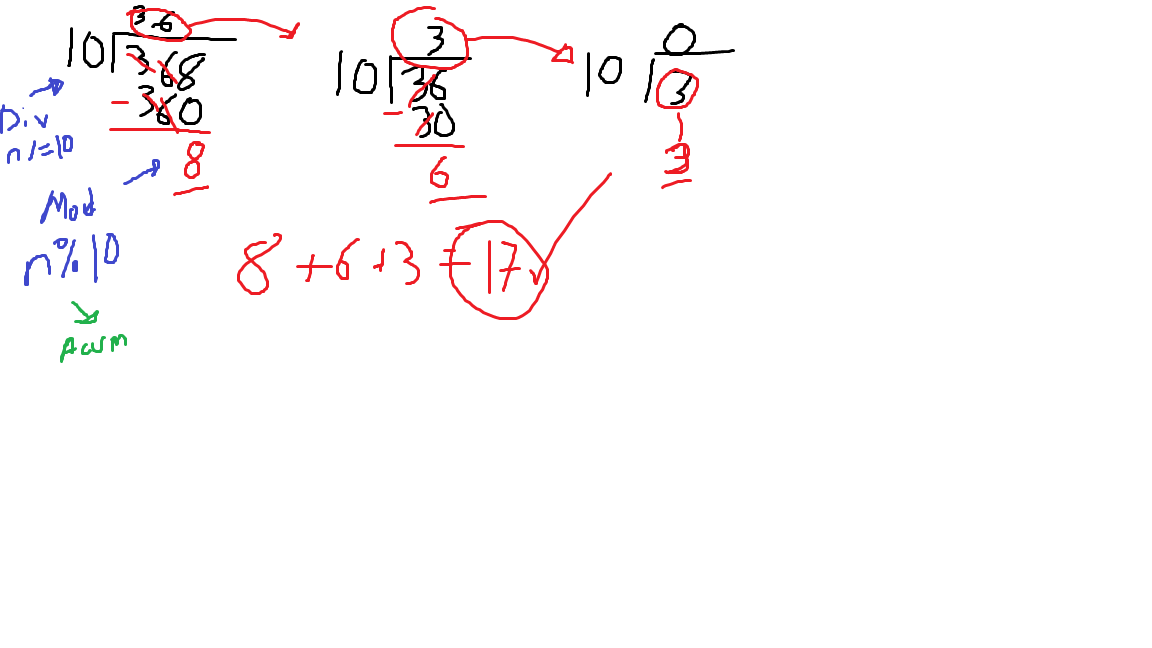 36
10 368
- 360
8
3
10 36
- 30
6
0
10 3
3
Div
n/=10
Mod
n%10
Acum
8+6+3=17